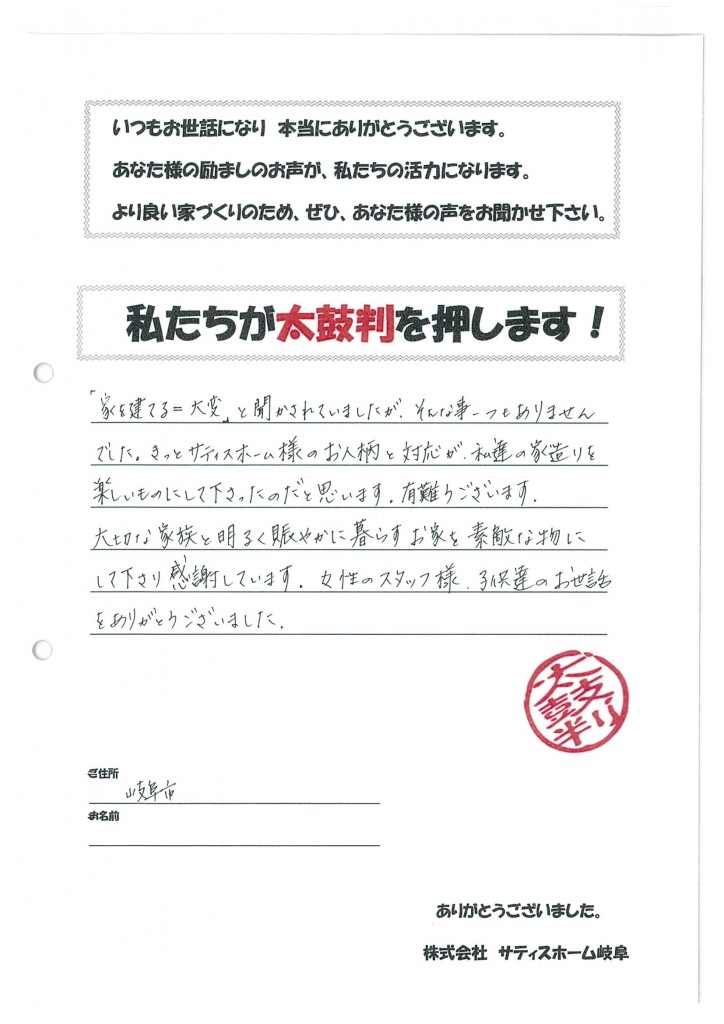 いつもお世話になり 本当にありがとうございます。
あなた様の励ましのお声が、私たちの活力になります。
より良い家づくりのため、ぜひ、あなた様の声をお聞かせ下さい。
私たちが太鼓判を押します！
「家を建てる=大変」と聞かされていましたが、そんな事一つもありません
でした。きっとサティスホーム様のお人柄と対応が、私達の家造りを
楽しいものにして下さったのだと思います。有難うございます。
大切な家族と明るく賑やかに暮らすお家を素敵な物に
して下さり感謝しています。女性のスタッフ様、子供達のお世話
をありがとうございました。
太鼓判
ご住所
岐阜市
お名前
ありがとうございました。
株式会社 サティスホーム岐阜